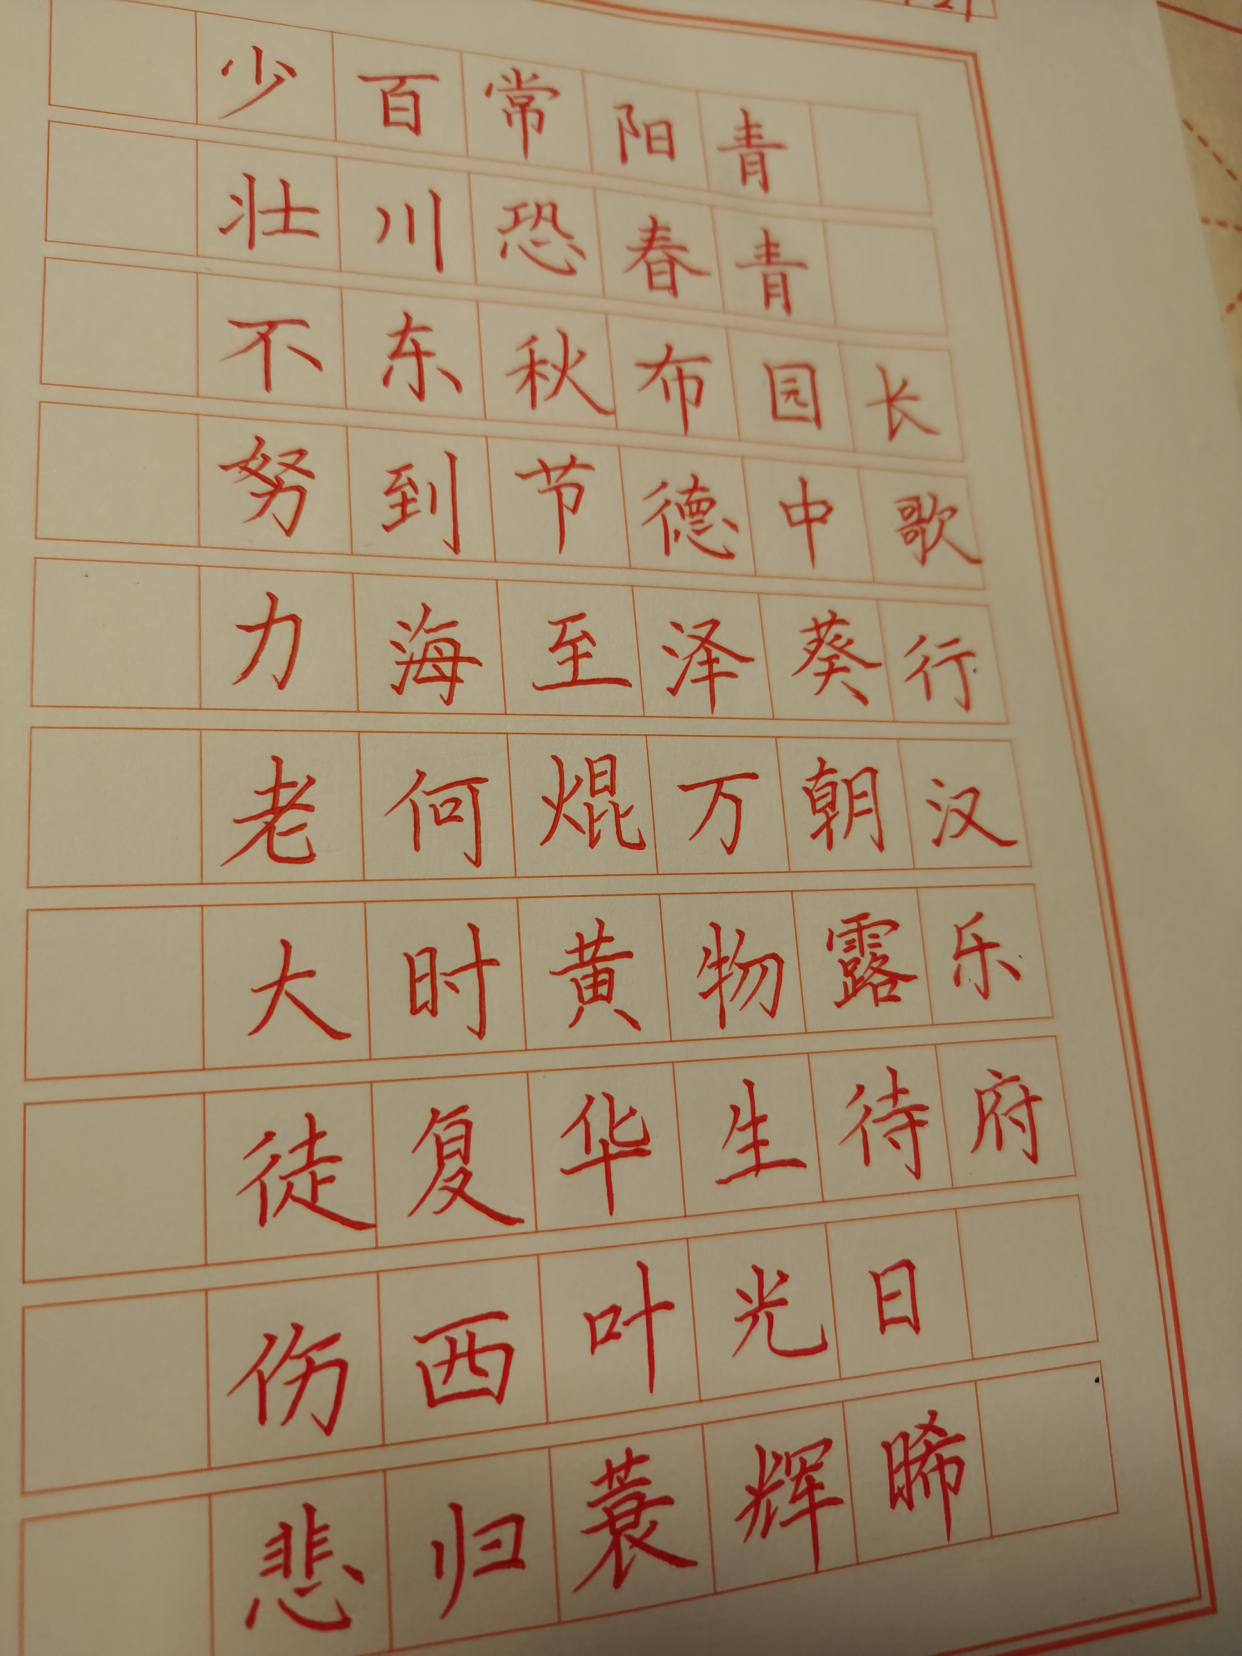 长歌行汉乐府
青青园中葵朝露待日晞
阳春布德泽万物生光辉
常恐秋节至焜黄华叶蓑
百川东到海何时复西归
少壮不努力老大徒伤悲